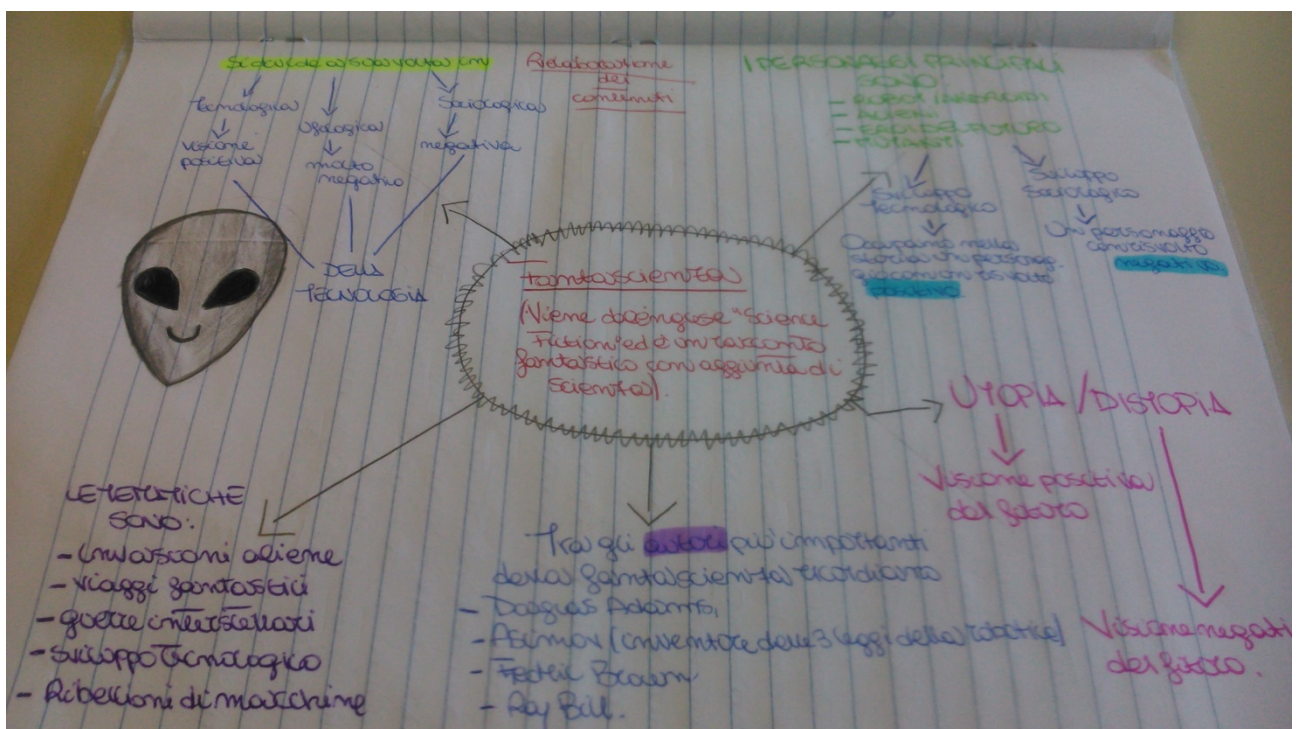 Si divide a sua volta in
Tecnologica
visione
positiva
Ufologica
molto
negativo
Sociologica
negativa
DELLA
TECNOLOGIA
Rielaborazione
dei
contenuti
I PERSONAGGI PRINCIPALI
SONO:
- ROBOT/ANDROIDI
- ALIENI
- EROI DEL FUTURO
- MUTANTI
Sviluppo
tecnologico
Occupano nella
storia un personag.
gio con un risvolto
positivo
Sviluppo
Sociologico
Un personaggio
con risvolto
negativo.
Fantascienza
(Viene da inglese "Science
Fiction" ed è un racconto
fantastico con aggiunta di
scienza).
UTOPIA / DISTOPIA
Visione positiva
del futuro
Visione negati
del futuro.
LE TEMATICHE
SONO:
- invasioni aliene
- viaggi fantastici
- guerre interstellari
- sviluppo tecnologico
- Ribellioni di macchine
Tra gli autori più importanti
della fantascienza ricordiamo
- Douglas Adams,
- Asimov (inventore delle 3 leggi della robotica)
- Fedric Brown
- Ray Bill.